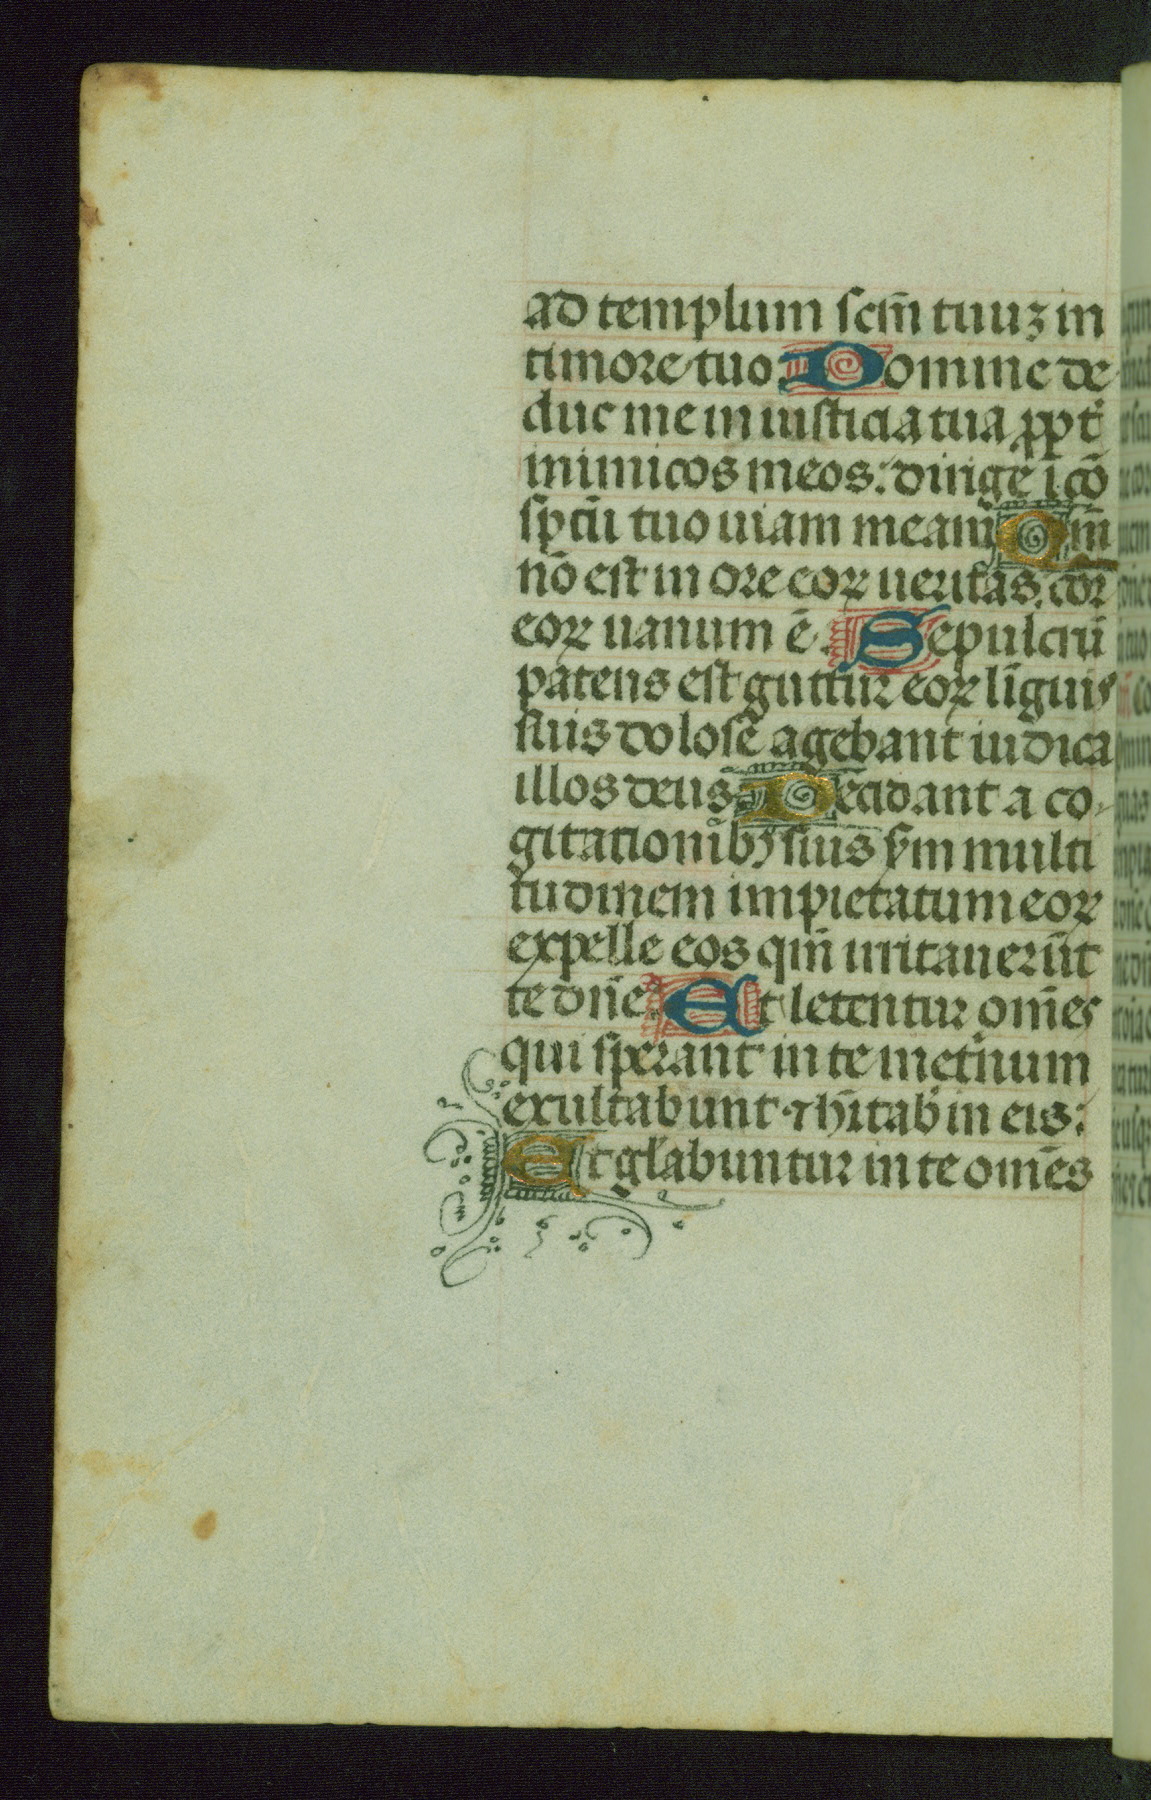 ad templum scm̄ tuuꝫ in
timore tuo. Domine de
duc me in iusticia tua ꝓpt̉
inimicos meos: dirige ī cō
spctū tuo uiam meam Qm̄
nō est in ore eoꝝ ueritas. cor
eoꝝ uanum ē. Sepulcrū
patens est guttur eoꝝ līguis
suis dolose agebant iudica
illos deus. Decidant a co-
gitationibꝫ suis sꝫm multi
tudinem impietatum eoꝝ
expelle eos qm̄ irritauerūt
te dn̄e. Et letentur om̄es
qui sperant in te inet̉num
exultabunt ⁊ hītab̄ in eis:
Et gl̄abuntur in te om̄es